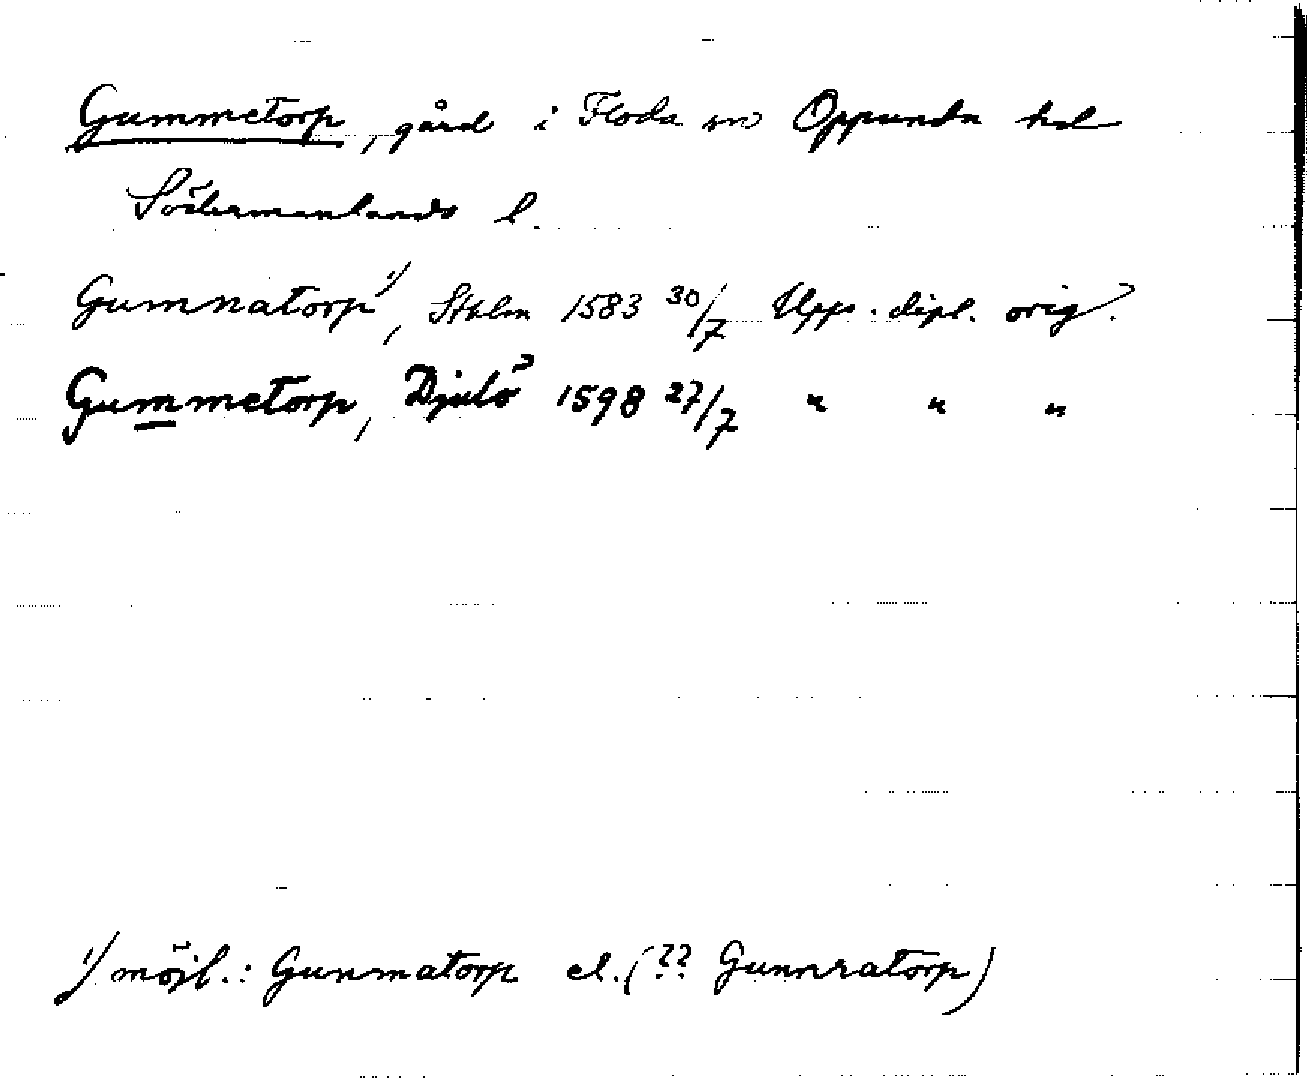 Gummetorp, gård i Floda sn Oppunda hd
Södermanlands l.
Gumnatorp 1/, Sthlm 1583 30/7 Upps. dipl. orig.
Gummetorp, Djulö 1598 27/7 " " "
1/ möjl.: Gunmatorp el. (?? Gunnratorp)